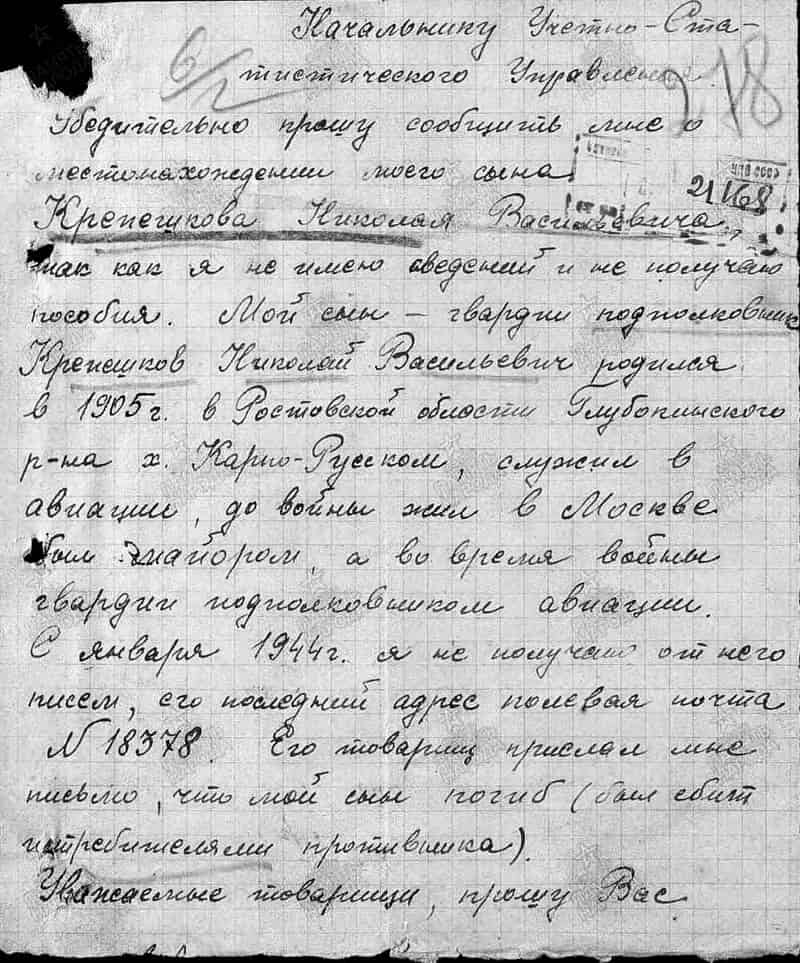 Начальнику Учетно-Ста-
тистического Управления.
278
Убедительно прошу сообщить мне о
местонахождении моего сына
21/V68
Крепешкова Николая Васильевича
так как я не имею сведений и не получаю
пособия. Мой сын – гвардии подполковник
Крепешков Николай Васильевич родился
в 1905 г. в Ростовской области Глубокинского
р-на х. Карпо-Русском, служил в
авиации, до войны жил в Москве
был майором, а во время войны
гвардии подполковником авиации.
С января 1944 г. я не получаю от него
писем, его последний адрес полевая почта
N 18378. Его товарищ прислал мне
письмо, что мой сын погиб (был сбит
истребителями противника).
Уважаемые товарищи, прошу Вас